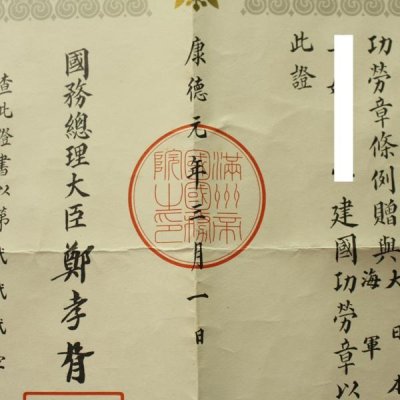 功勞章條例贈與大日本
海軍
建國功勞章以
此證
康德元年三月一日
滿洲帝國國務院之印
國務總理大臣鄭孝胥
查此證書以第